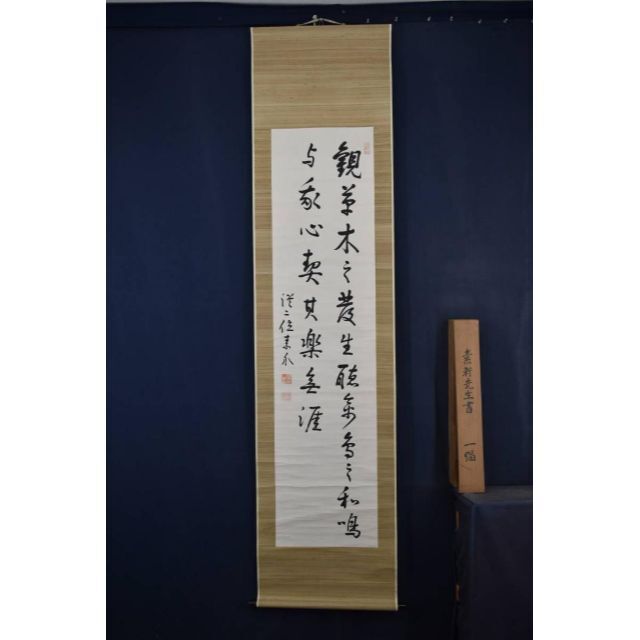 觀草木之發生聽禽鳥之和鳴
与我心契其樂無涯
從二位
素軒先生書 一幅